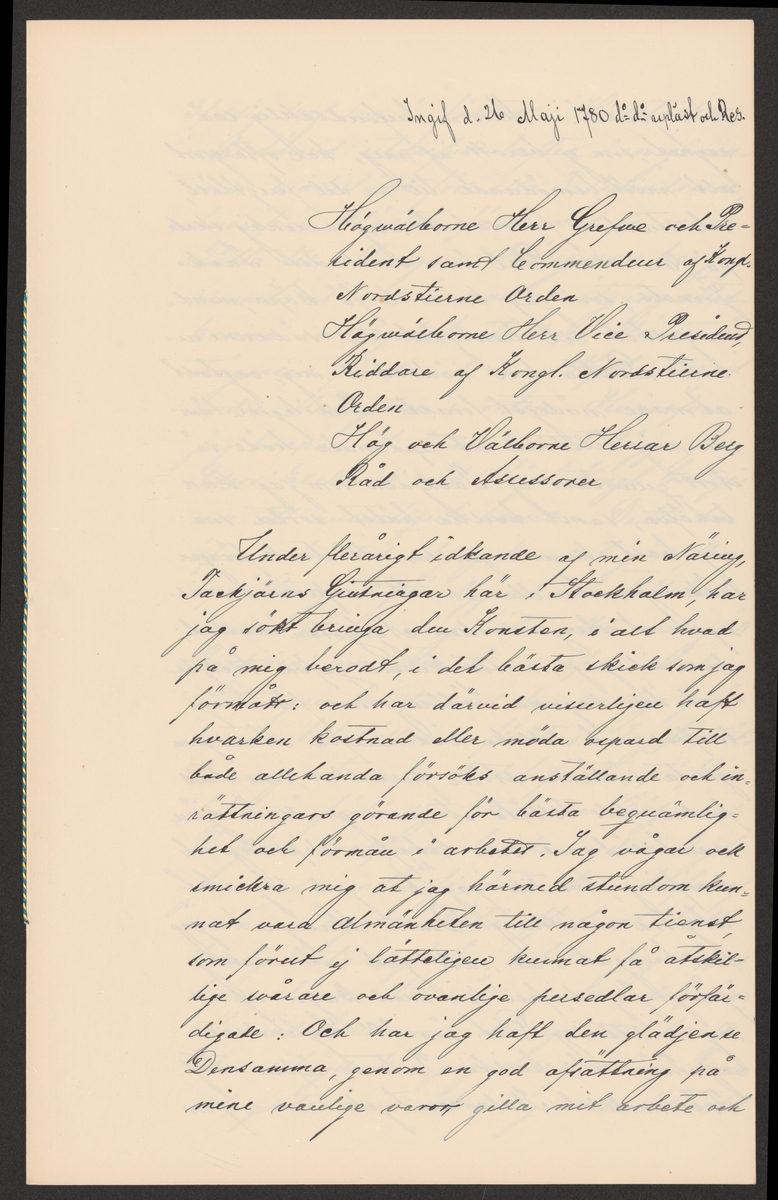 Ingif d. 26 Maji 1780 dº dº upläst och Res.
Högwälborne Herr Grefwe och Pre=
sident samt Commendeur af Kongl.
Nordstierne Orden
Högwälborne Herr Vice President,
Riddare af Kongl. Nordstierne
Orden
Hög och Välborne Herrar Berg
Råd och Assessorer
Under flerårigt idkande af min Näring,
Tackjärns Giutningar här i Stockholm, har
jag sökt bringa den Konsten, i alt hvad
på mig berodt, i det bästa skick som jag
förmått: och har därvid visserligen haft
hvarken kostnad eller möda ospard till
både allehanda försöks anställande och in=
rättningars görande för bästa beqvämlig=
het och förmån i arbetet. Jag vågar ock
smickra mig at jag härmed stundom kun=
nat vara Almänheten till någon tienst,
som förut ej lätteligen kunnat få åtskil=
lige svårare och ovanlige persedlar förfär=
digade: Och har jag haft den glädjen se
Densamma, genom en god afsättning på
mine vanlige varor gilla mit arbete och